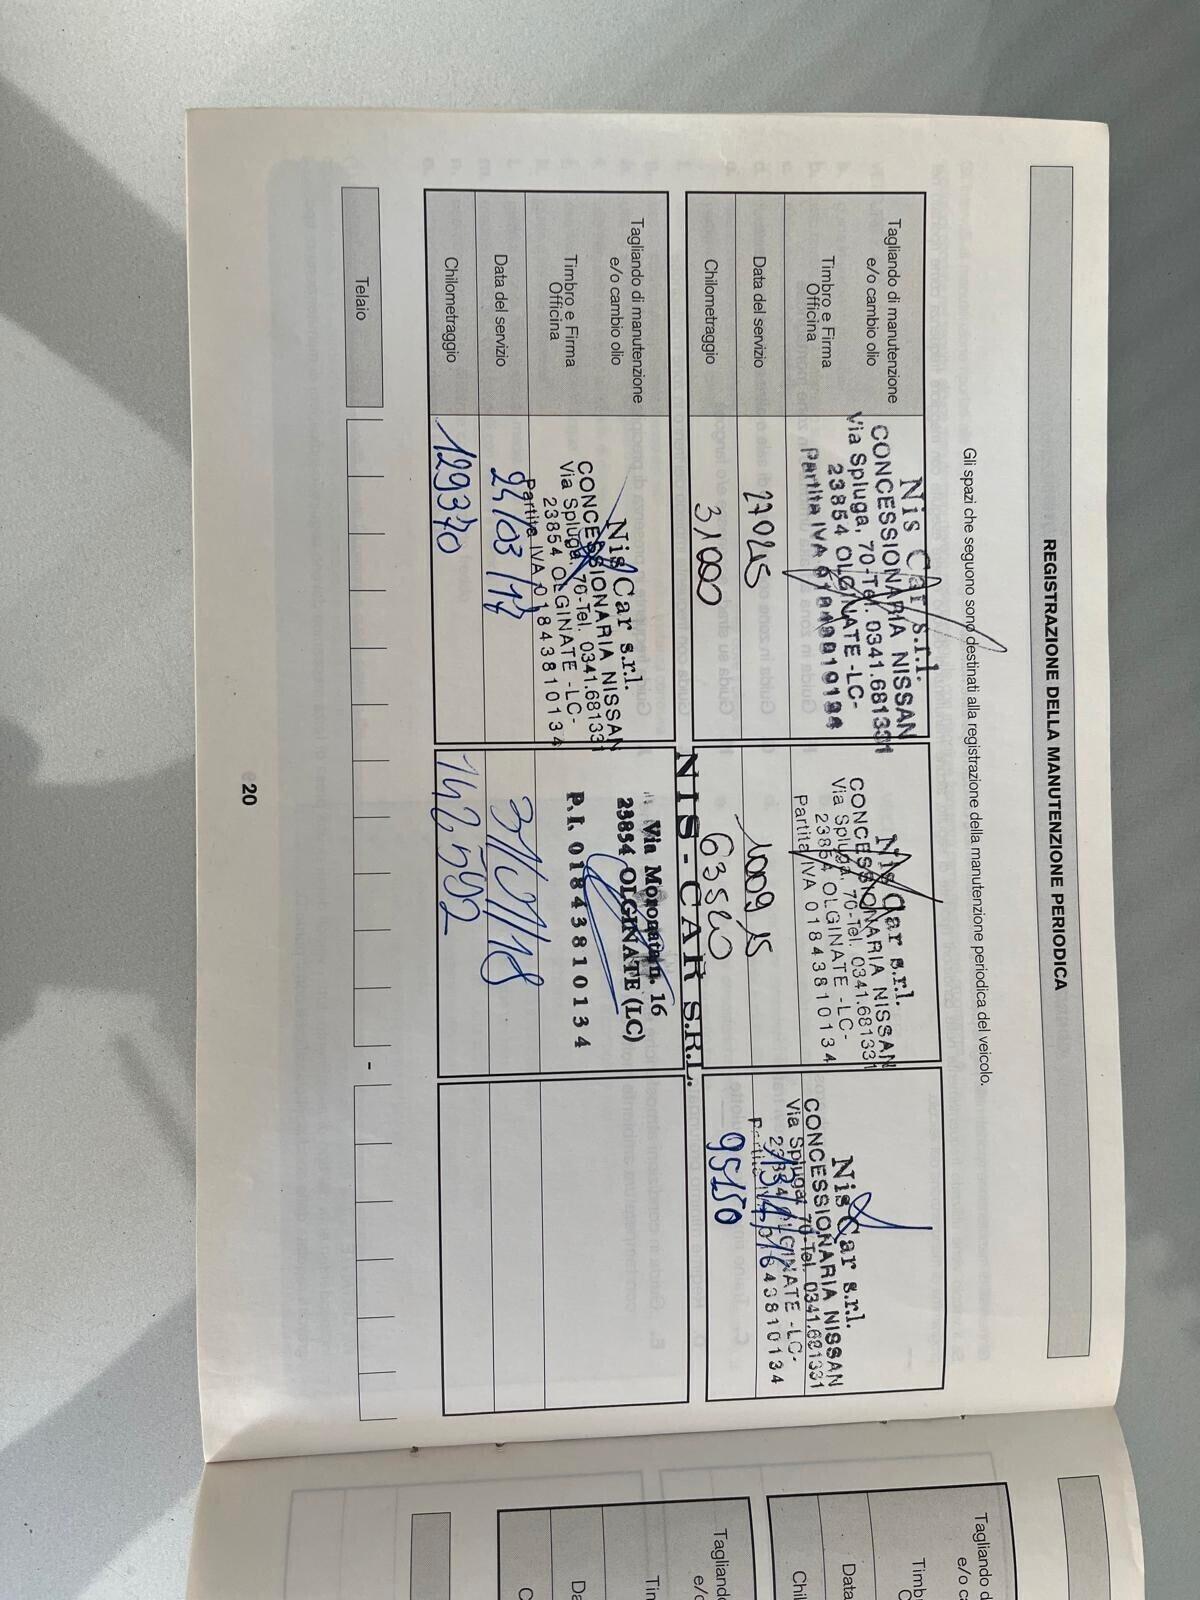 REGISTRAZIONE DELLA MANUTENZIONE PERIODICA
Gli spazi che seguono sono destinati alla registrazione della manutenzione periodica del veicolo.
Tagliando di manutenzione
e/o cambio olio
Timbro e Firma
Officina
Data del servizio
Chilometraggio
Nis Car s.r.l.
CONCESSIONARIA NISSAN
Via Spluga, 70-Tel. 0341.681331
23854 OLGINATE -LC-
Partita IVA
31000
Nis Car s.r.l.
CONCESSIONARIA NISSAN
Via Spluga, 70-Tel. 0341.681331
23854 OLGINATE -LC-
Partita IVA 01843810134
63520
Nis Car s.r.l.
CONCESSIONARIA NISSAN
Via Spluga, 70-Tel. 0341.681331
23854 OLGINATE -LC-
95150
Tagliando di manutenzione
e/o cambio olio
Timbro e Firma
Officina
Data del servizio
Chilometraggio
Nis Car s.r.l.
CONCESSIONARIA NISSAN
Via Spluga, 70-Tel. 0341.681331
23854 OLGINATE -LC-
Partita IVA 01843810134
24/03/17
129370
NIS - CAR S.R.L.
Via Moronata n. 16
23854 OLGINATE (LC)
P.I. 01843810134
142592
Telaio
-
20
Tagliando d
e/o ca
Timb
Data
Chil
Tagliando
e/o
Tim
Da
C